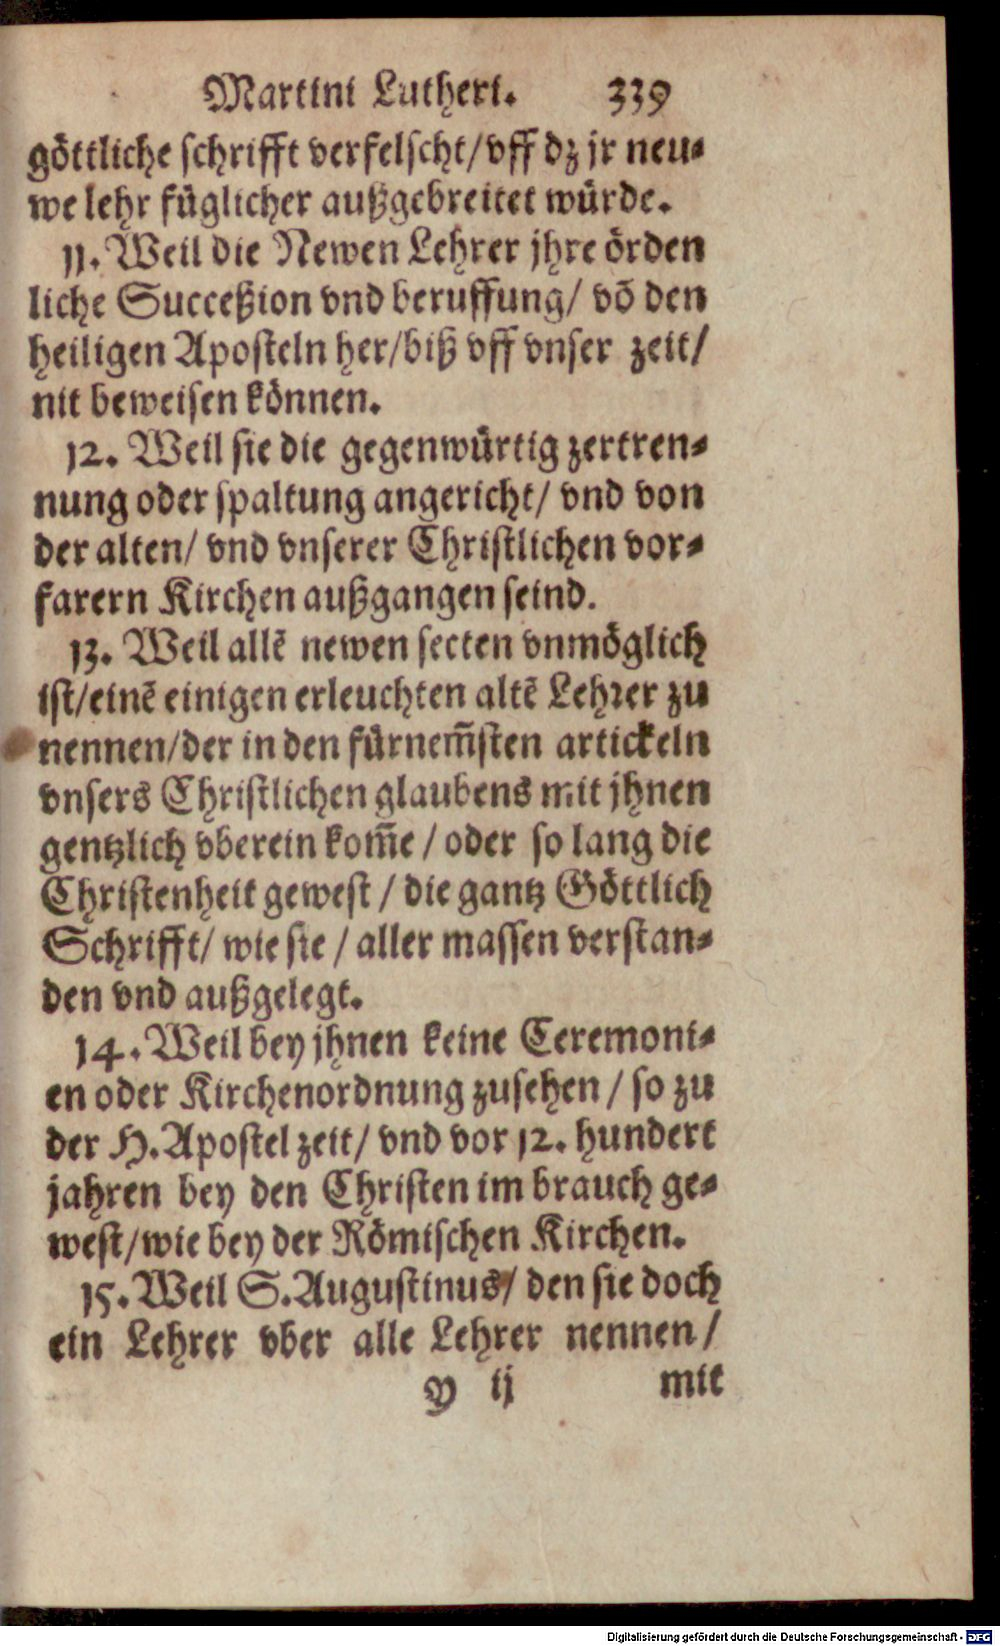 Martini Lutheri. 339
göttliche schrifft verfelscht/vff dz jr neu-
we lehr füglicher außgebreitet würde.
11. Weil die Newen Lehrer jhre örden
liche Succeßion vnd beruffung/ võ den
heiligen Aposteln her/biß vff vnser zeit/
nit beweisen können.
12. Weil sie die gegenwürtig zertren-
nung oder spaltung angericht/ vnd von
der alten/ vnd vnserer Christlichen vor-
farern Kirchen außgangen seind.
13. Weil allẽ newen secten vnmöglich
ist/einẽ einigen erleuchten altẽ Lehrer zu
nennen/der in den fürnem̃sten artickeln
vnsers Christlichen glaubens mit jhnen
gentzlich vberein kom̃e / oder so lang die
Christenheit gewest / die gantz Göttlich
Schrifft/ wie sie / aller massen verstan-
den vnd außgelegt.
14. Weil bey jhnen keine Ceremoni-
en oder Kirchenordnung zusehen / so zu
der H. Apostel zeit/ vnd vor 12. hundert
jahren bey den Christen im brauch ge-
west/wie bey der Römischen Kirchen.
15. Weil S. Augustinus/ den sie doch
ein Lehrer vber alle Lehrer nennen/
y ij mit
Digitalisierung gefördert durch die Deutsche Forschungsgemeinschaft - DFG